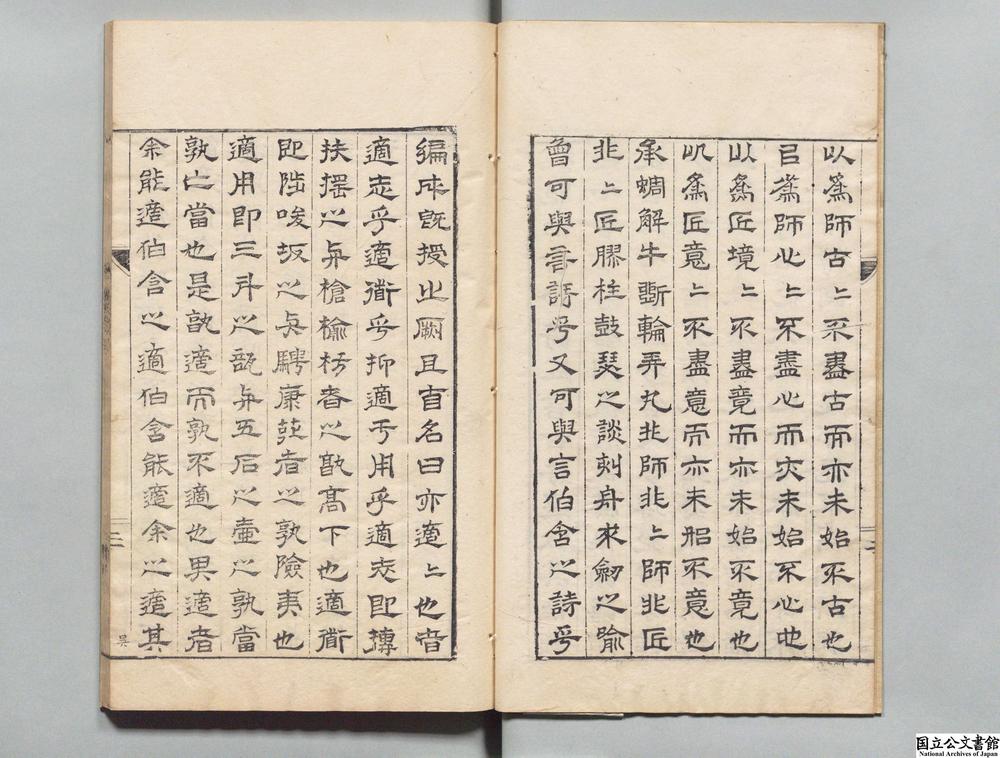 以為師古〻不盡古而亦未始不古也
㠯為師心〻不盡心而亦未始不心也
以為匠境〻不盡竟而亦未始不竟也
以為匠意〻不盡意而亦未始不意也
承蜩解牛斲輪弄丸非師非〻師非匠
非〻匠膠柱鼓瑟之談刻舟求劒之喻
曾可與言詩乎又可與言伯含之詩乎
編成既授之厥且首名曰亦適〻也音
適志乎適衜乎抑適于用乎適志即摶
扶搖之與槍榆枋者之孰高下也適衜
即陁坂之與騁康莊者之孰險夷也
適用即三斗之瓿與五石之壺之孰當
孰亡當也是孰適而孰不適也果適者
余能適伯含之適伯含能適余之適其
吳
国立公文書館
National Archives of Japan